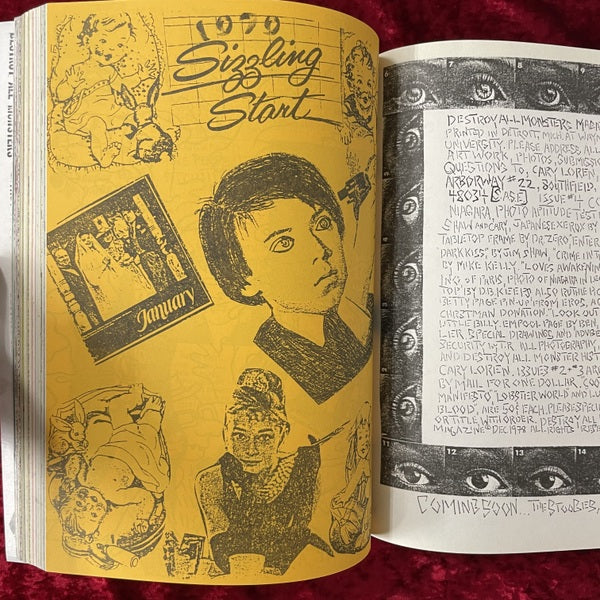 DESTROY ALL MONSTERS
1979
Sizzling
Start
January
6 7 8 9
DESTROY ALL MONSTERS MAGA
PRINTED IN DETROIT MICH. AT WAYN
UNIVERSITY. PLEASE ADDRESS AL
ART WORK, PHOTOS, SUBMISSIO
QUESTIONS TO, CARY LOREN,
ARBORWAY #22, SOUTHFIELD,
48034 [SASE] ISSUE #4 CO
NIAGARA, PHOTO APTITUDE TEST
SHAW AND CARY, JAPANESE XEROX BY
TABLETOP FRAME BY DR. ZERO, ENTER
"DARK KISS" BY JIM SHAW, "CRIME IN T
BY MIKE KELLY, "LOVES AWAKENIN
ING OF PARIS, PHOTO OF NIAGARA IN LE
TOP BY D.B. KEEPS ALSO RUTH HO
BETTY PAGE PIN UP FROM EROS, AC
CHRISTMAN DONATION. "LOOK OUT
LITTLE BILLY. EMPOOL PAGE BY BEN,
LIER SPECIAL DRAWINGS AND ADVISE
SECURITY STR. ALL PHOTOGRAPHY,
AND DESTROY ALL MONSTER HIST
CARY LOREN, ISSUES #2+#3 AR
BY MAIL FOR ONE DOLLAR, COO
MANIFESTO, LOBSTER WORLD AND LU
BLOOD", ARE 50¢ EACH. PLEASE SPECI
OR TITLE WITH ORDER. DESTROY ALL
MAGAZINE © DEC 1978 ALL RIGHTS RESE
11 12 13 14
COMING SOON... THE STOOGES,